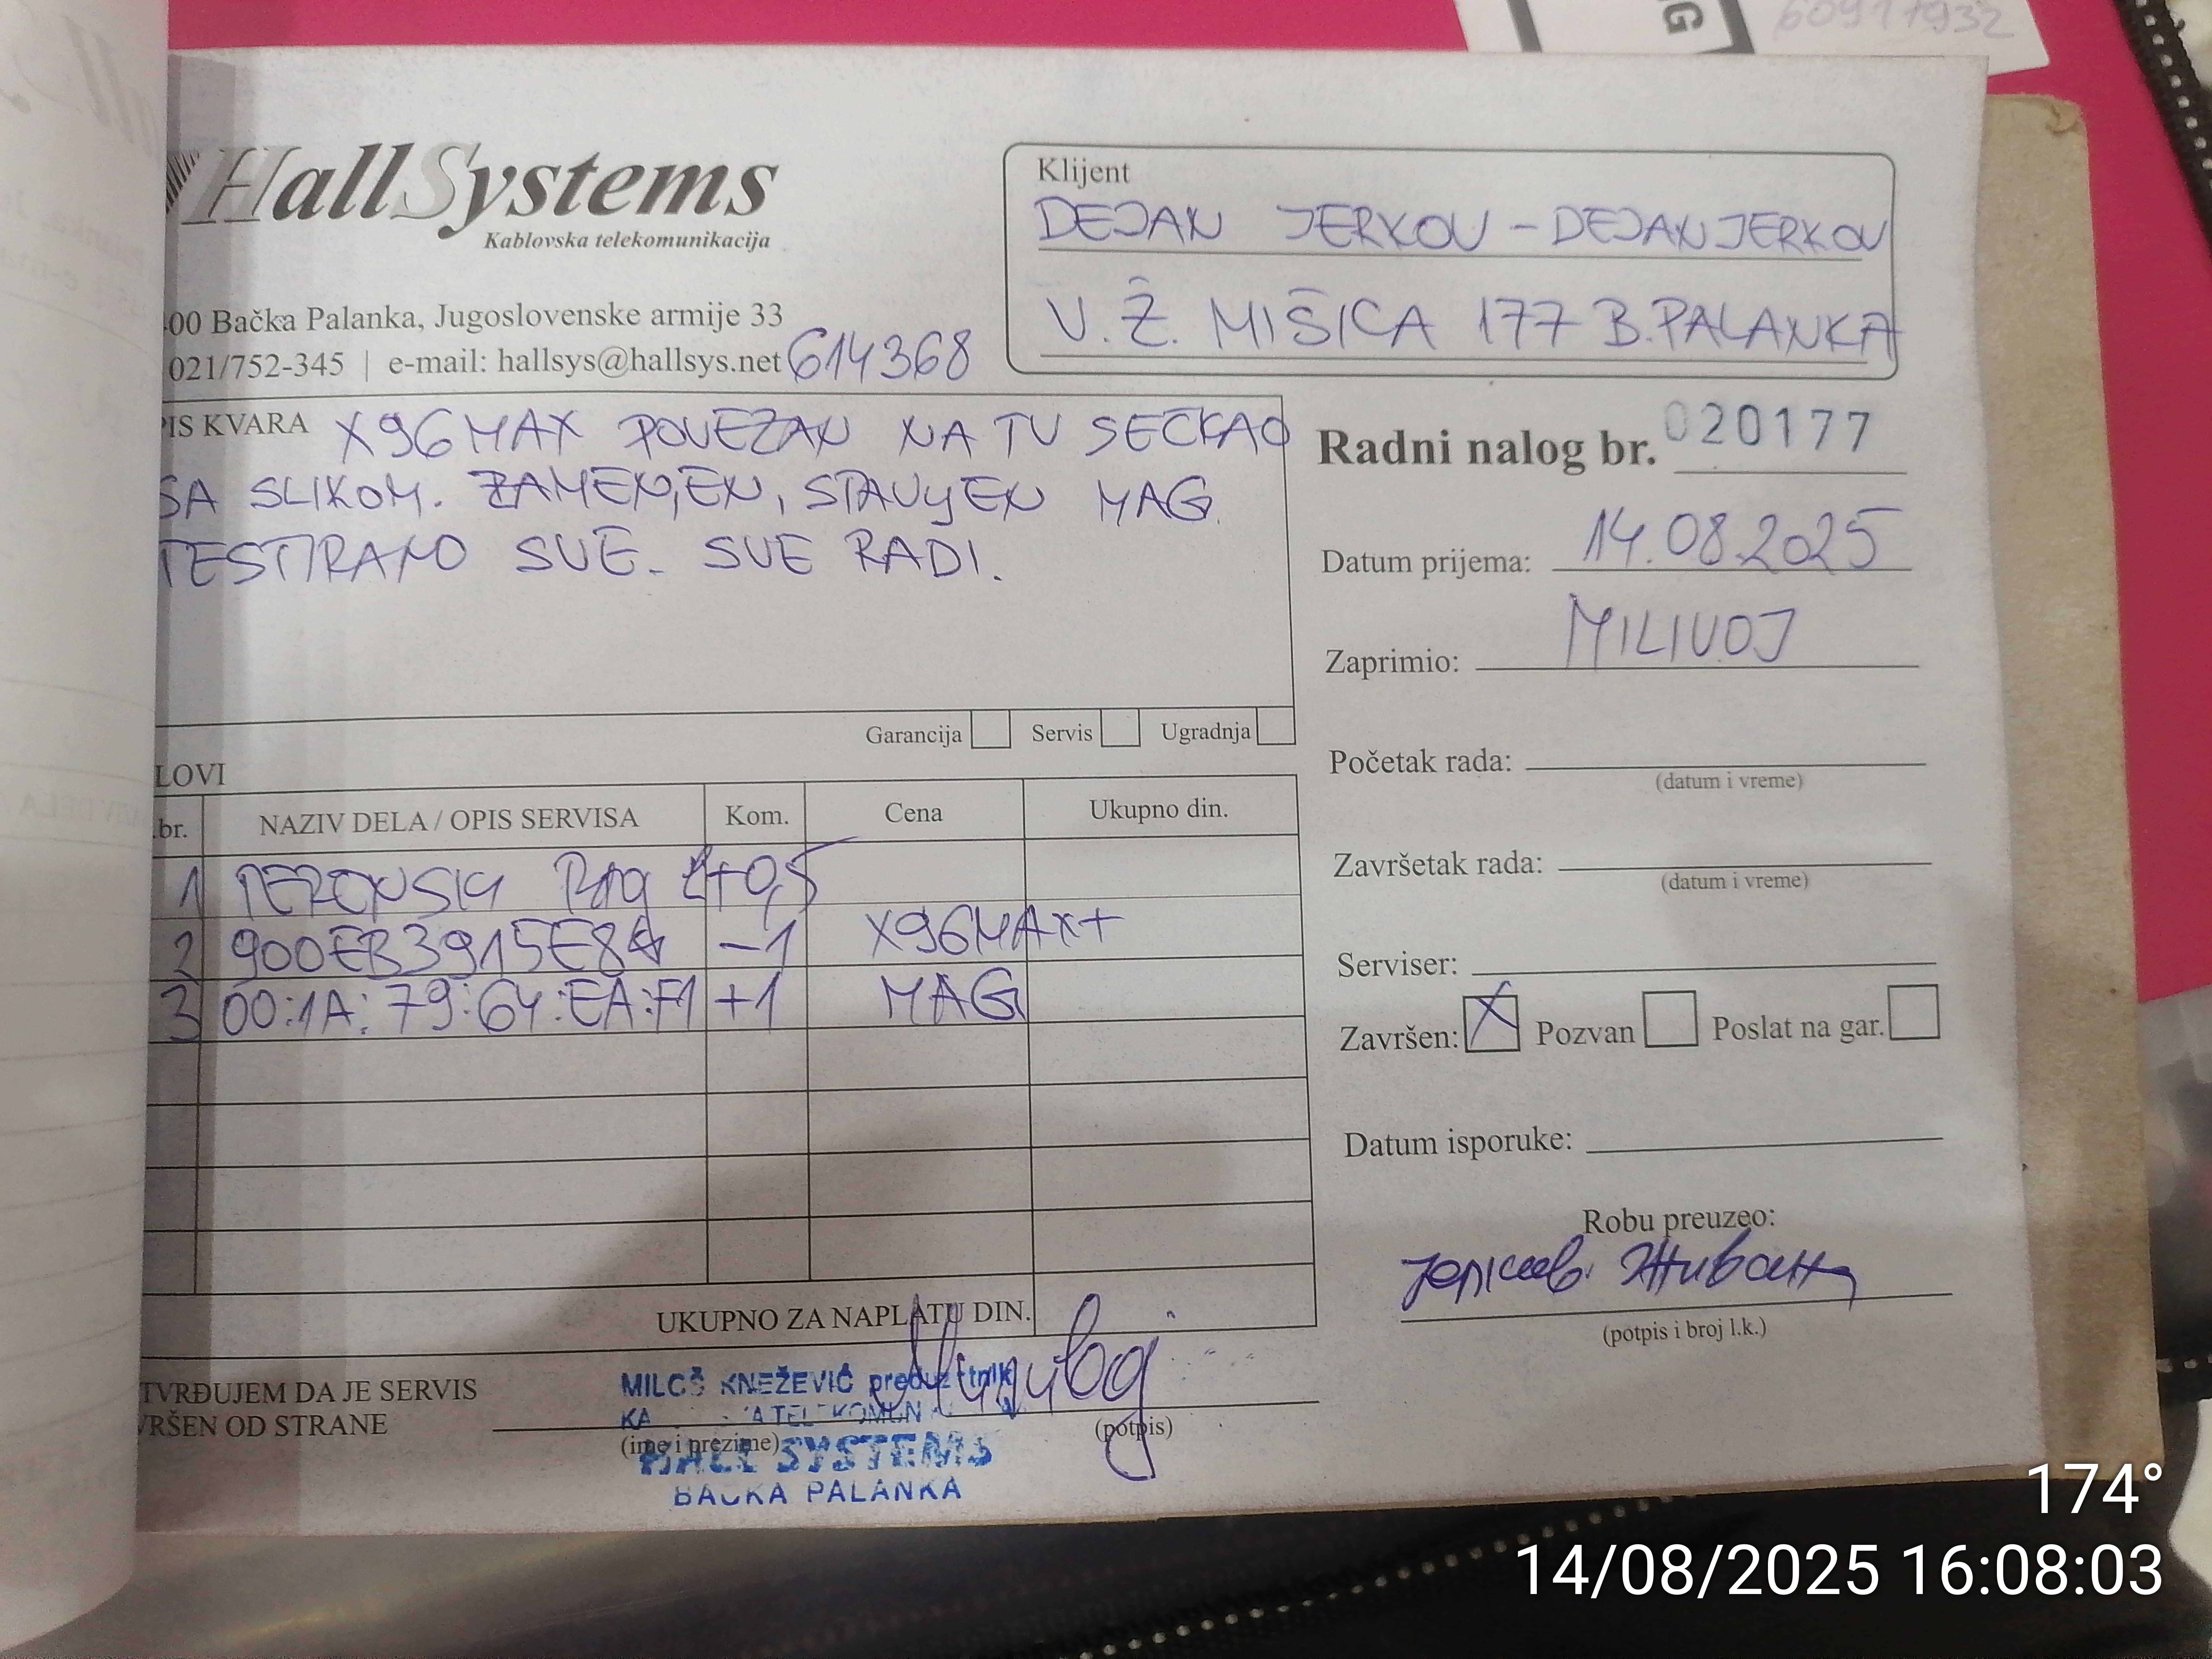 60917932
G
HallSystems
Kablovska telekomunikacija
00 Bačka Palanka, Jugoslovenske armije 33
021/752-345 | e-mail: hallsys@hallsys.net 614368
Klijent
DEJAN JERKOV - DEJANJERKOV
V. Ž. MIŠICA 177 B. PALANKA
PIS KVARA X96MAX POVEZAN NA TV SECKAO
SA SLIKOM. ZAMENJEN, STAVLJEN MAG.
TESTIRANO SVE. SVE RADI.
Garancija Servis Ugradnja
Radni nalog br. 020177
Datum prijema: 14.08.2025
Zaprimio: MILIVOJ
Početak rada:
(datum i vreme)
Završetak rada:
(datum i vreme)
Serviser:
Završen: X Pozvan Poslat na gar.
Datum isporuke:
Robu preuzeo:
(potpis i broj l.k.)
LOVI
.br. NAZIV DELA / OPIS SERVISA Kom. Cena Ukupno din.
1 TERENSKI RAD +0,5
2 900EB3915E8 -1 X96MAX+
3 00:1A:79:64:EA:F1 +1 MAG
UKUPNO ZA NAPLATU DIN.
TVRĐUJEM DA JE SERVIS
VRŠEN OD STRANE
(ime i prezime)
(potpis)
MILOŠ KNEŽEVIĆ
HALL SYSTEMS
BAČKA PALANKA
174°
14/08/2025 16:08:03